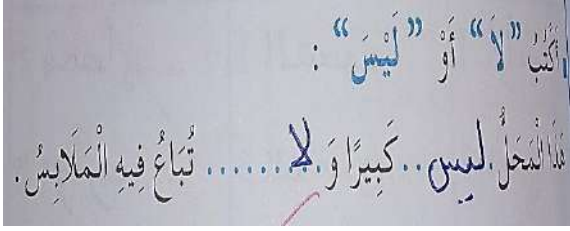 أَكْتُبُ "لَا" أَوْ "لَيْسَ" :
هَذَا الْمَحَلُّ .ليس.. كَبِيرًا وَ .لا....... تُبَاعُ فِيهِ الْمَلَابِسُ.